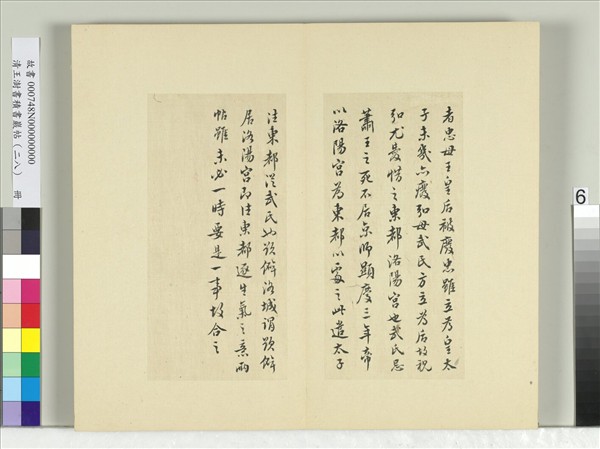 者忠母王皇后被廢忠雖立為皇太
子未幾亦廢弘母武氏方立為后故視
弘尤愛惜之東都洛陽宮也武氏忌
蕭王之死不居京師顯慶二年帝
以洛陽宮為東都以處之此遣太子
往東都從武氏也跋僻洛城謂跋僻
居洛陽宮即往東都遂生氣之意兩
帖雖未必一時要是一事故合之
故書 000748N000000000
清王澍書積書巖帖(二八) 冊
6